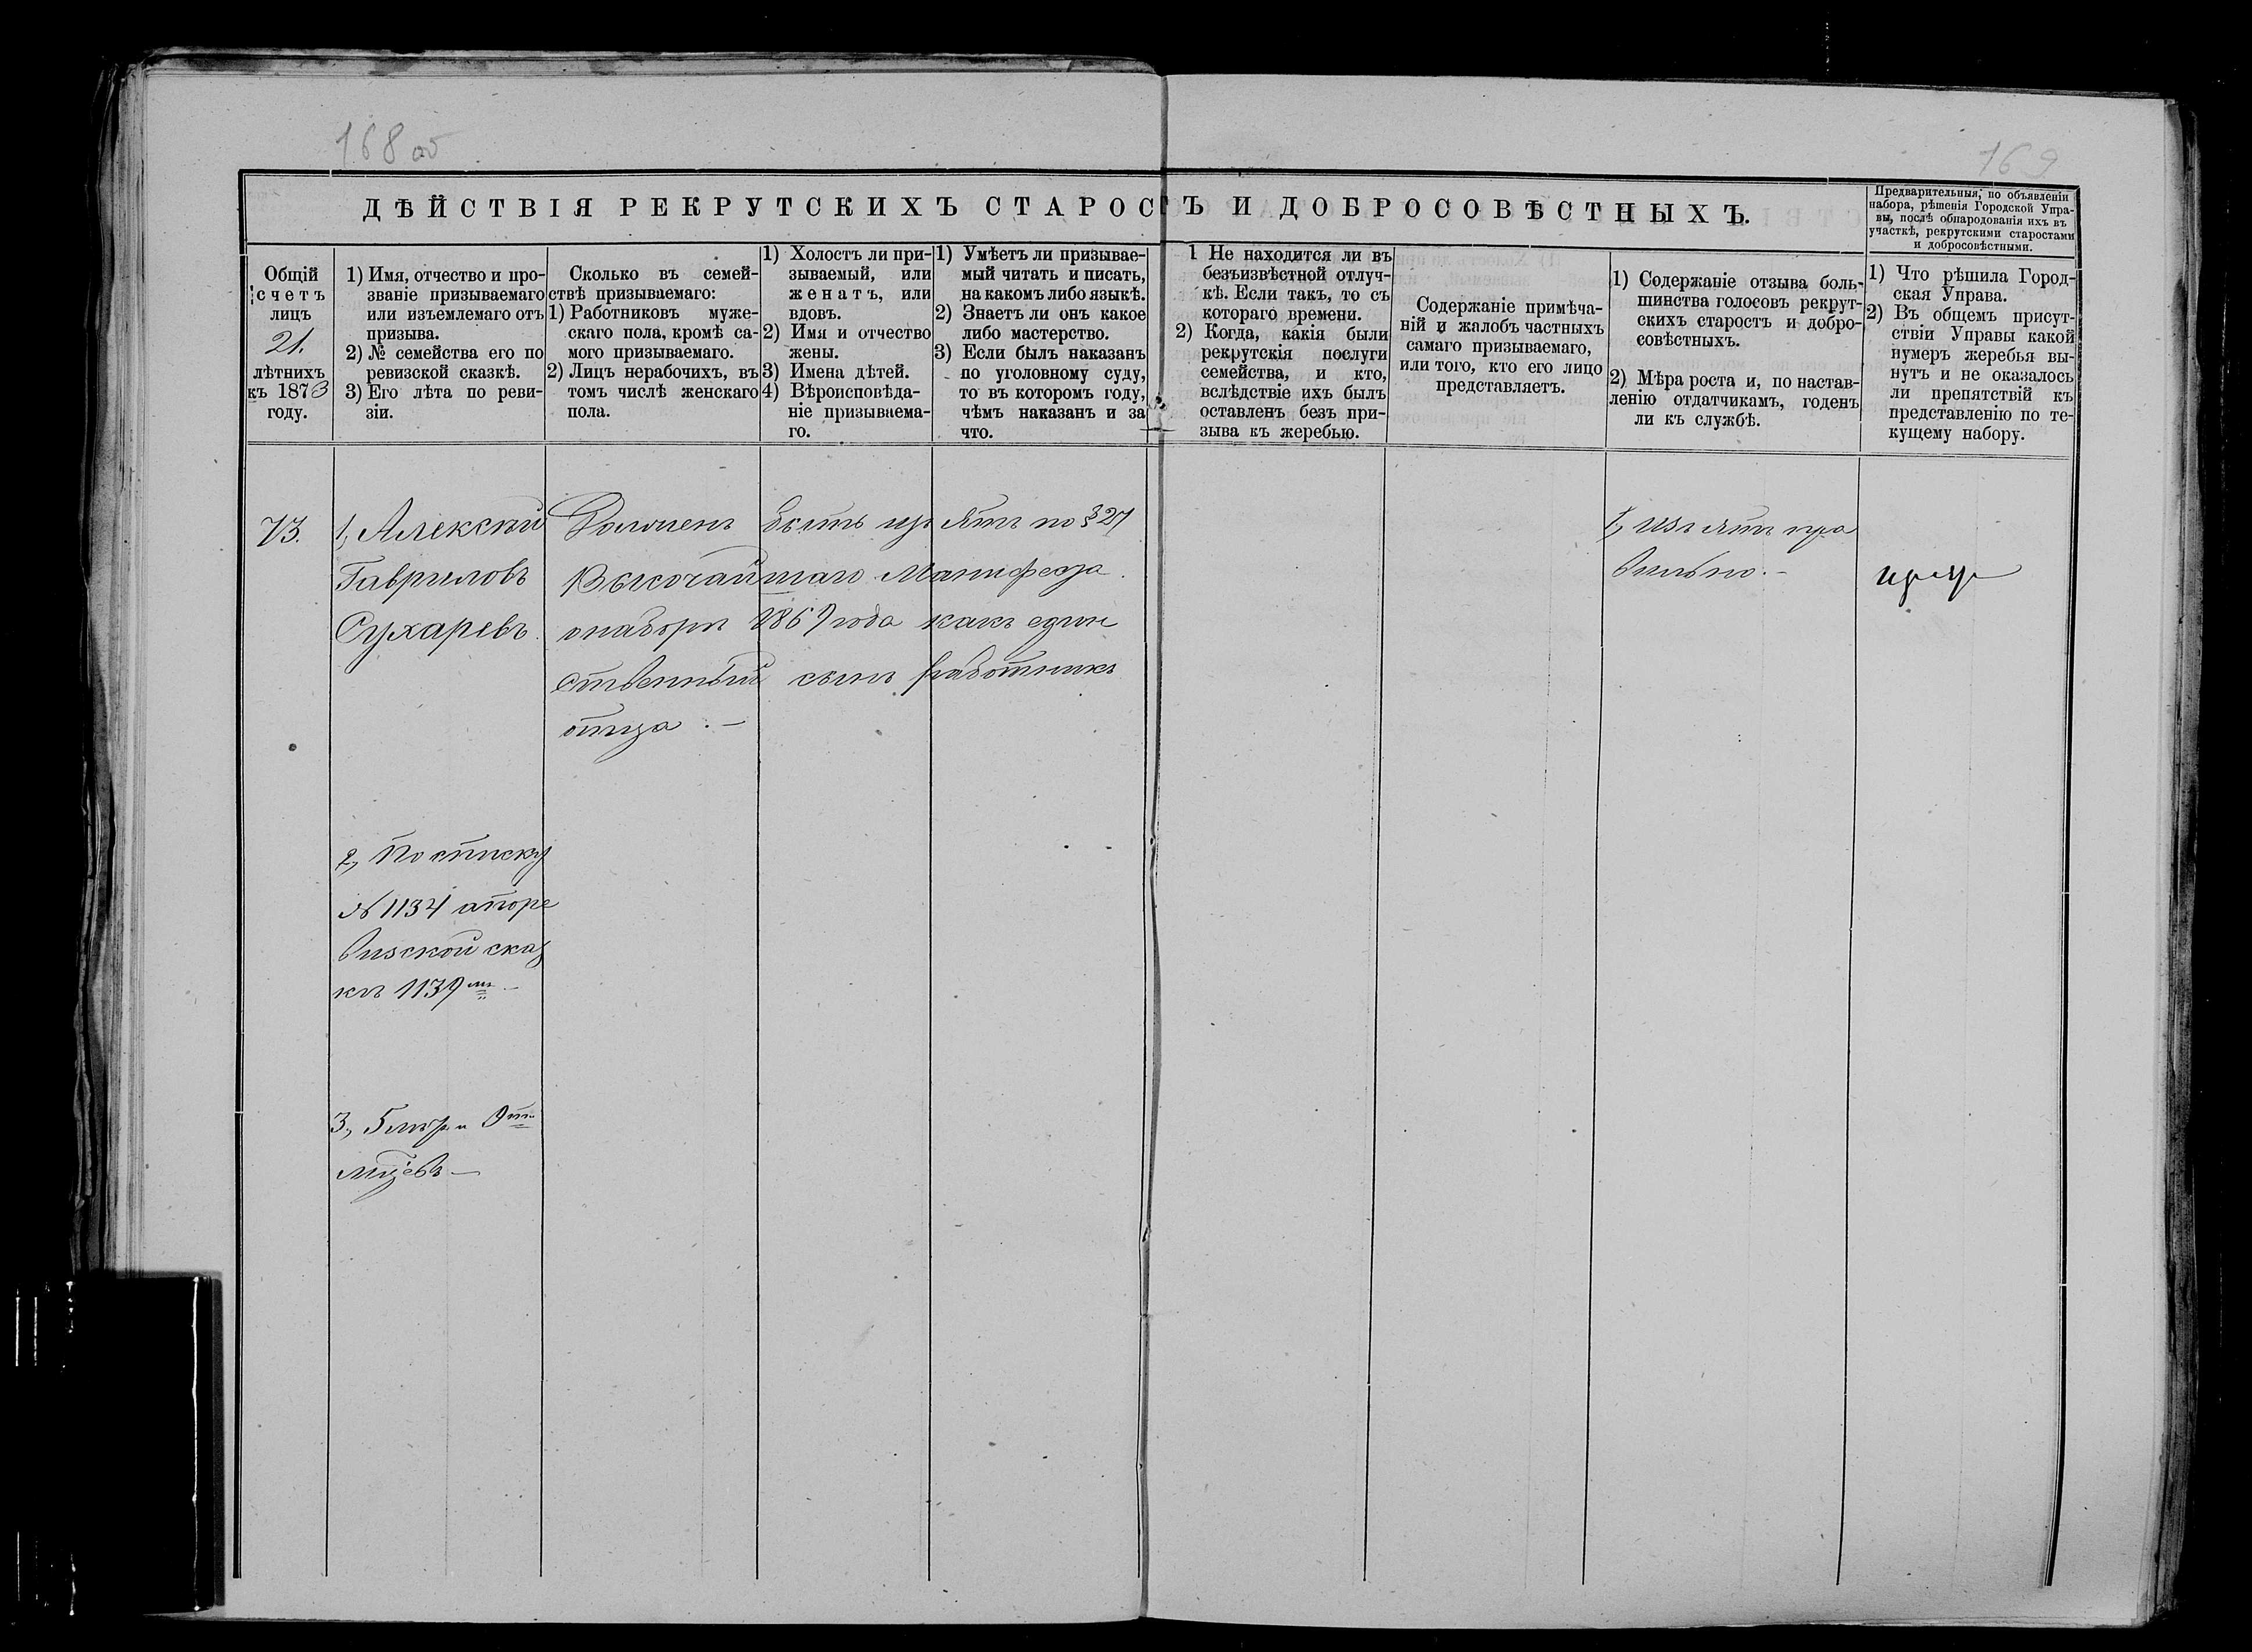 168 об
169
ДѢЙСТВІЯ РЕКРУТСКИХЪ СТАРОСТЪ И ДОБРОСОВѢСТНЫХЪ.
Предварительныя, по объявленіи
набора, рѣшенія Городской Упра-
вы, послѣ обнародованія ихъ въ
участкѣ, рекрутскими старостами
и добросовѣстными.
Общій
счетъ
лицъ
21.
лѣтнихъ
къ 1873
году.
1) Имя, отчество и про-
званіе призываемаго
или изъемлемаго отъ
призыва.
2) № семейства его по
ревизской сказкѣ.
3) Его лѣта по реви-
зіи.
Сколько въ семей-
ствѣ призываемаго:
1) Работниковъ муже-
скаго пола, кромѣ са-
мого призываемаго.
2) Лицъ нерабочихъ, въ
томъ числѣ женскаго
пола.
1) Холостъ ли при-
зываемый, или
женатъ, или
вдовъ.
2) Имя и отчество
жены.
3) Имена дѣтей.
4) Вѣроисповѣда-
ніе призываема-
го.
1) Умѣетъ ли призывае-
мый читать и писать,
на какомъ либо языкѣ.
2) Знаетъ ли онъ какое
либо мастерство.
3) Если былъ наказанъ
по уголовному суду,
то въ которомъ году,
чѣмъ наказанъ и за
что.
1 Не находится ли въ
безъизвѣстной отлуч-
кѣ. Если такъ, то съ
котораго времени.
2) Когда, какія были
рекрутскія послуги
семейства, и кто,
вслѣдствіе ихъ былъ
оставленъ безъ при-
зыва къ жеребью.
Содержаніе примѣча-
ній и жалобъ частныхъ
самаго призываемаго,
или того, кто его лицо
представляетъ.
1) Содержаніе отзыва боль-
шинства голосовъ рекрут-
скихъ старостъ и добро-
совѣстныхъ.
2) Мѣра роста и, по настав-
ленію отдатчикамъ, годенъ
ли къ службѣ.
1) Что рѣшила Город-
ская Управа.
2) Въ общемъ присут-
ствіи Управы какой
нумеръ жеребья вы-
нутъ и не оказалось
ли препятствій къ
представленію по те-
кущему набору.
73.
1, Алексѣй
Гавриловъ
Сухаревъ.
2, По списку
№ 1134 а поре
визской сказ
кѣ 1139мъ
3, 5 лѣтъ и 9ти
мѣсяцевъ
Долженъ быть изъятъ по § 27
Высочайшаго Манифеста
о наборѣ 1869 года какъ един
ственный сынъ работникъ
отца. —
1, изъятъ пра
вильно. —